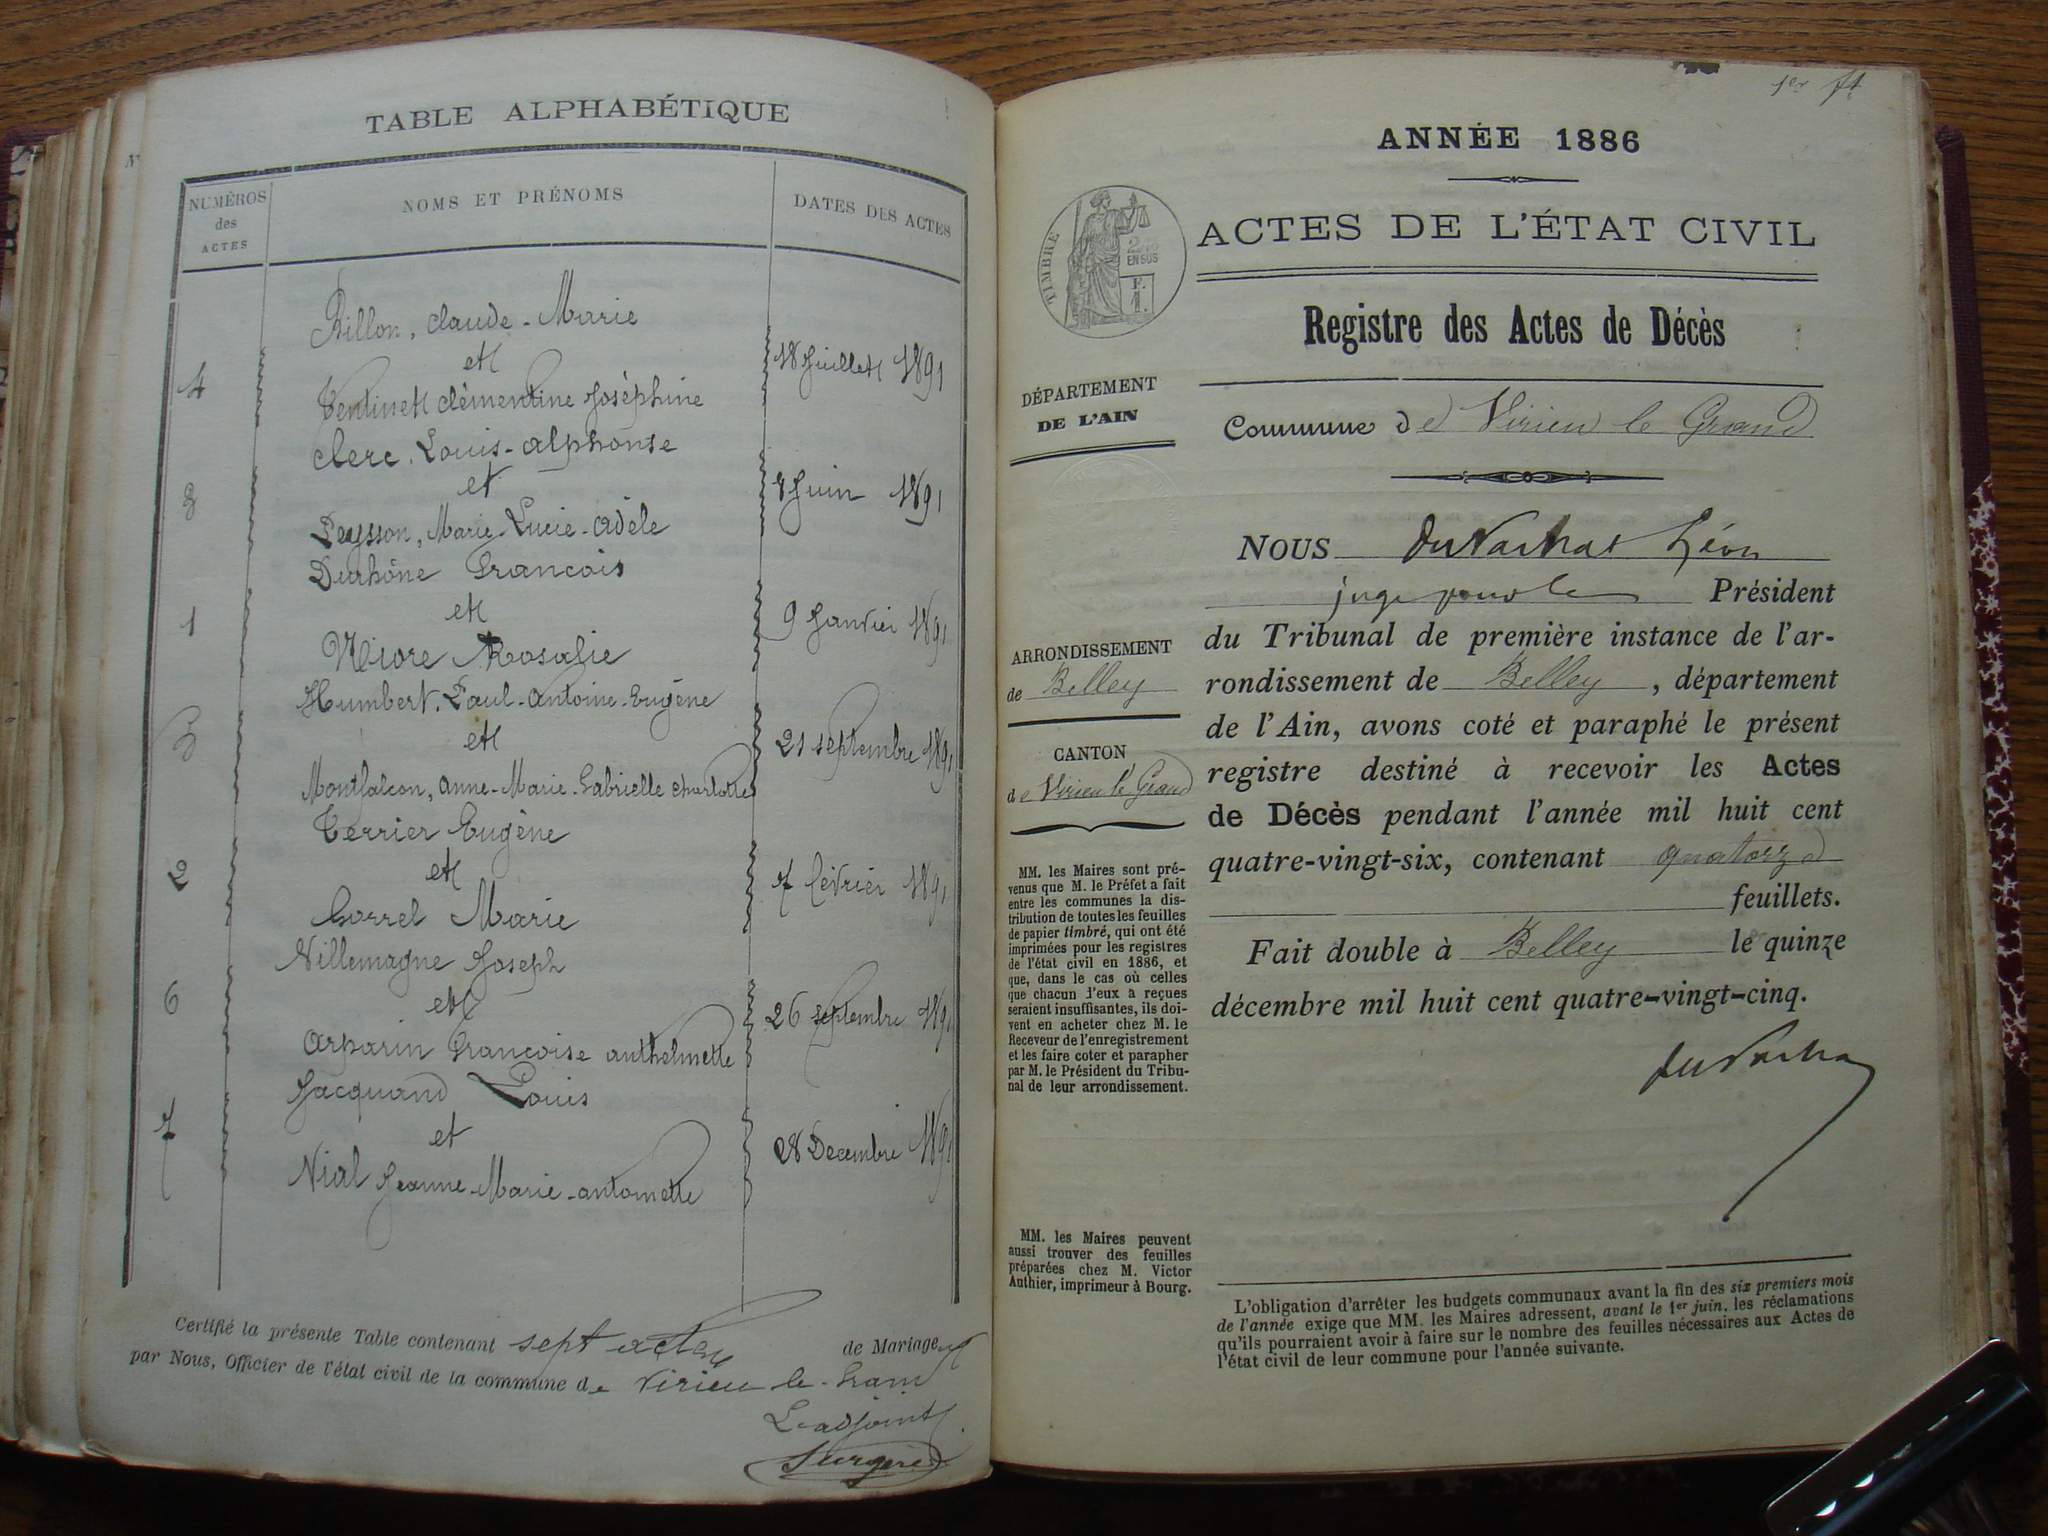 TABLE ALPHABÉTIQUE
NUMÉROS
des
ACTES
NOMS ET PRÉNOMS
DATES DES ACTES
Billon, Claude-Marie
et
4 18 Juillet 1891
Clémentine Joséphine
Clerc, Louis-Alphonse
et
3 8 Juin 1891
Peysson, Marie-Lucie-Adèle
Durhône François
et
1 9 Janvier 1891
Rosalie
Humbert, Paul-Antoine-Eugène
et
5 21 septembre 1891
Montfalcon, Anne-Marie-Gabrielle Charlotte
Terrier Eugène
et
2 7 février 1891
Marie
Villemagne Joseph
et
6 26 septembre 1891
Arparin Françoise Anthelmette
Jacquand Louis
et
7 28 Decembre 1891
Vial Jeanne-Marie-Antoinette
Certifié la présente Table contenant sept actes de Mariage
par Nous, Officier de l'état civil de la commune de Virieu-le-Grand
L'adjoint
1er
ANNÉE 1886
TIMBRE
2/10
EN SUS
F.
1.
ACTES DE L'ÉTAT CIVIL
Registre des Actes de Décès
DÉPARTEMENT
DE L'AIN
Commune de Virieu le Grand
ARRONDISSEMENT
de Belley
CANTON
de Virieu le Grand
MM. les Maires sont pré-
venus que M. le Préfet a fait
entre les communes la dis-
tribution de toutes les feuilles
de papier timbré, qui ont été
imprimées pour les registres
de l'état civil en 1886, et
que, dans le cas où celles
que chacun d'eux a reçues
seraient insuffisantes, ils doi-
vent en acheter chez M. le
Receveur de l'enregistrement
et les faire coter et parapher
par M. le Président du Tribu-
nal de leur arrondissement.
MM. les Maires peuvent
aussi trouver des feuilles
préparées chez M. Victor
Authier, imprimeur à Bourg.
NOUS Léon
juge pour le Président
du Tribunal de première instance de l'ar-
rondissement de Belley, département
de l'Ain, avons coté et paraphé le présent
registre destiné à recevoir les Actes
de Décès pendant l'année mil huit cent
quatre-vingt-six, contenant quatorze
feuillets.
Fait double à Belley le quinze
décembre mil huit cent quatre-vingt-cinq.
L'obligation d'arrêter les budgets communaux avant la fin des six premiers mois
de l'année exige que MM. les Maires adressent, avant le 1er juin, les réclamations
qu'ils pourraient avoir à faire sur le nombre des feuilles nécessaires aux Actes de
l'état civil de leur commune pour l'année suivante.